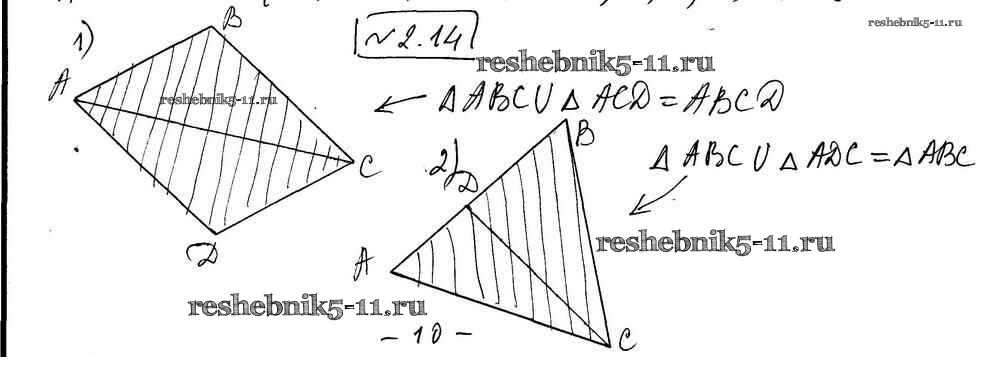 reshebnik5-11.ru
1)
№2.14
B
A
C
D
reshebnik5-11.ru
reshebnik5-11.ru
← Δ ABC ∪ Δ ACD = ABCD
2)
B
D
A
C
Δ ABC ∪ Δ ADC = Δ ABC
reshebnik5-11.ru
reshebnik5-11.ru
- 10 -